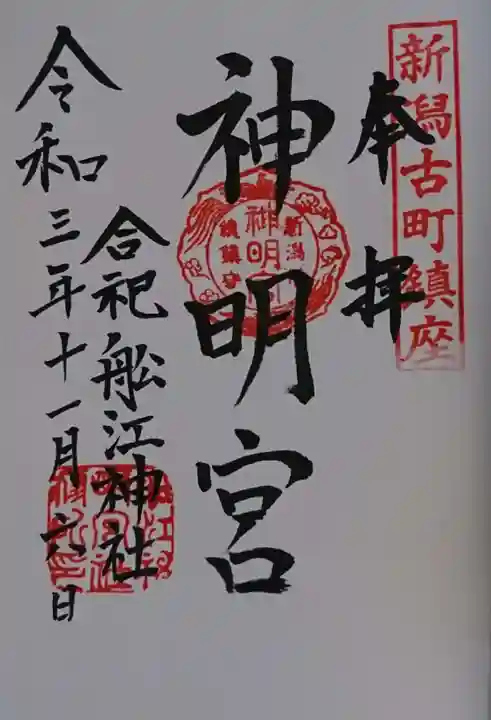 新潟古町鎮座
奉拝
神明宮
神明宮
新潟
合祀舩江神社
令和三年十一月六日